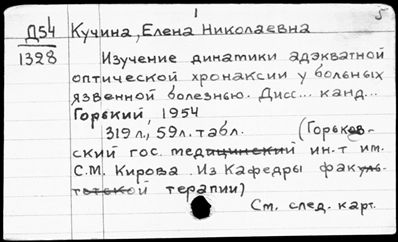 1 5
Д54 Кучина, Елена Николаевна
1328 Изучение динатики адэкватной
оптической хронаксии у больных
язвенной болезнью. Дисс... канд...
Горький, 1954
319 л., 59 л. табл. (Горьков-
ский гос. медицинский ин-т им.
С.М. Кирова. Из Кафедры факуль-
тетской терапии)
См. след. карт.